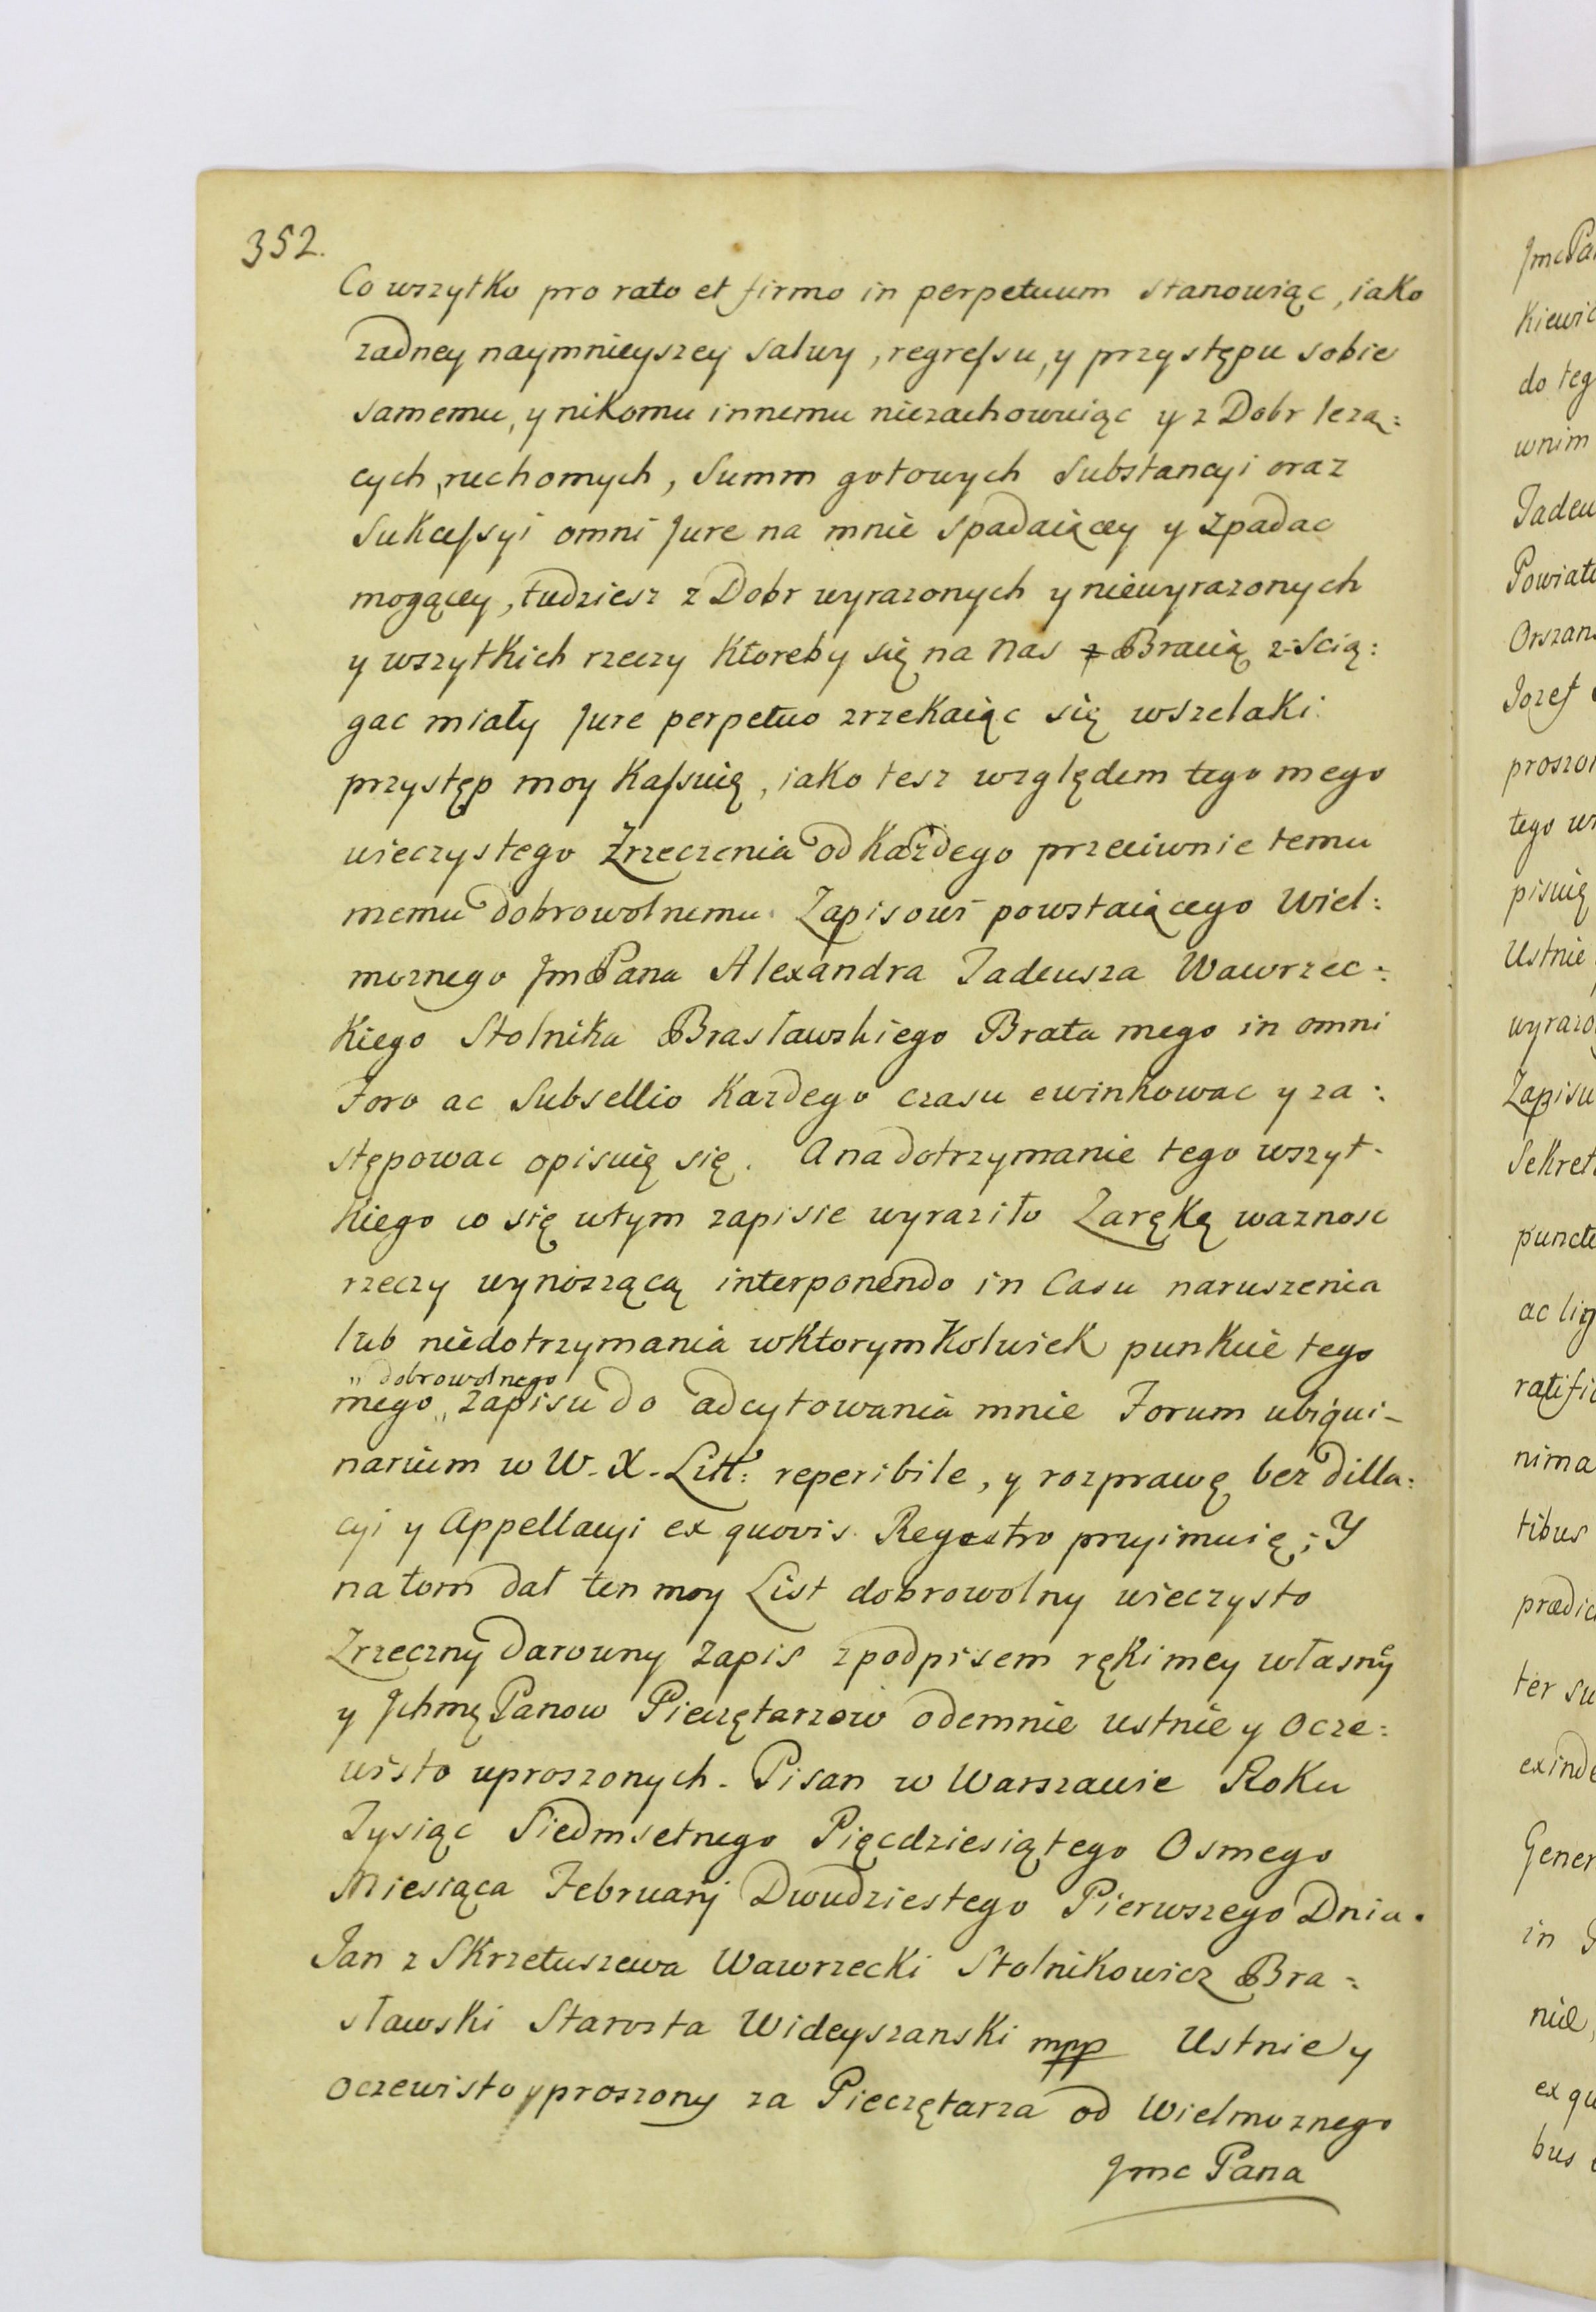 352.
Co wszytko pro rato et firmo in perpetuum stanowiąc, iako
zadney naymnieyszey salwy, regressu, y przystępu sobie
samemu, y nikomu innemu niezachowuiąc y z Dobr leżą:
cych, ruchomych, Summ gotowych Substancyi oraz
Sukcessyi omni Jure na mnie spadaiącey y zpadac
mogącey, tudziesz z Dobr wyrazonych y niewyrazonych
y wszytkich rzeczy ktoreby się na nas z Bracią z-Scią:
gac miały Jure perpetuo zrzekaiąc się wszelaki
przystęp moy Kassuię, iako tesz względem tego mego
wieczystego Zrzeczenia od Każdego przeciwnie temu
memu dobrowolnemu Zapisowi powstaiącego Wiel:
moznego JmcPana Alexandra Tadeusza Wawrzec:
Kiego Stolnika Brasławskiego Brata mego in omni
Foro ac Subsellio Kazdego czasu ewinkowac y za:
stępowac opisuię się. A na dotrzymanie tego wszyt-
Kiego co się wtym zapisie wyraziło Zarękę waznosc
rzeczy wynoszącą interponendo in Casu naruszenia
lub niedotrzymania wktorymkolwiek punkcie tego
" dobrowolnego
mego " zapisu do adcytowania mnie Forum ubiqui-
narium w W. X. Litt: reperibile, y rozprawę bez dilla:
cyi y Appellacyi ex quovis Regestro przyimuię; Y
na tom dał ten moy List dobrowolny wieczysto
Zrzeczny darowny zapis zpodpisem ręki mey własney
y Jchmę Panow Pieczętarzow odemnie ustnie y ocze:
wisto uproszonych. Pisan w Warszawie Roku
Tysiąc Siedmsetnego Pięcdziesiątego Osmego
Miesiąca Februarij Dwudziestego Pierwszego Dnia.
Jan z Skrzetuszewa Wawrzecki Stolnikowicz Bra:
sławski Starosta Wideyszanski mpp Ustnie y
oczewisto uproszony za Pieczętarza od Wielmoznego
Jmc Pana
JmcPa
Kiewic
do teg
wnim
Tadeu
Powiatu
Orszans
Jozef
proszon
tego w
pisuię
Ustnie
wyrazo
Zapisu
Sekret
puncte
ac lig
ratific
nima
tibus
prædic
ter su
exinde
Gener
in G
nie,
ex qu
bus